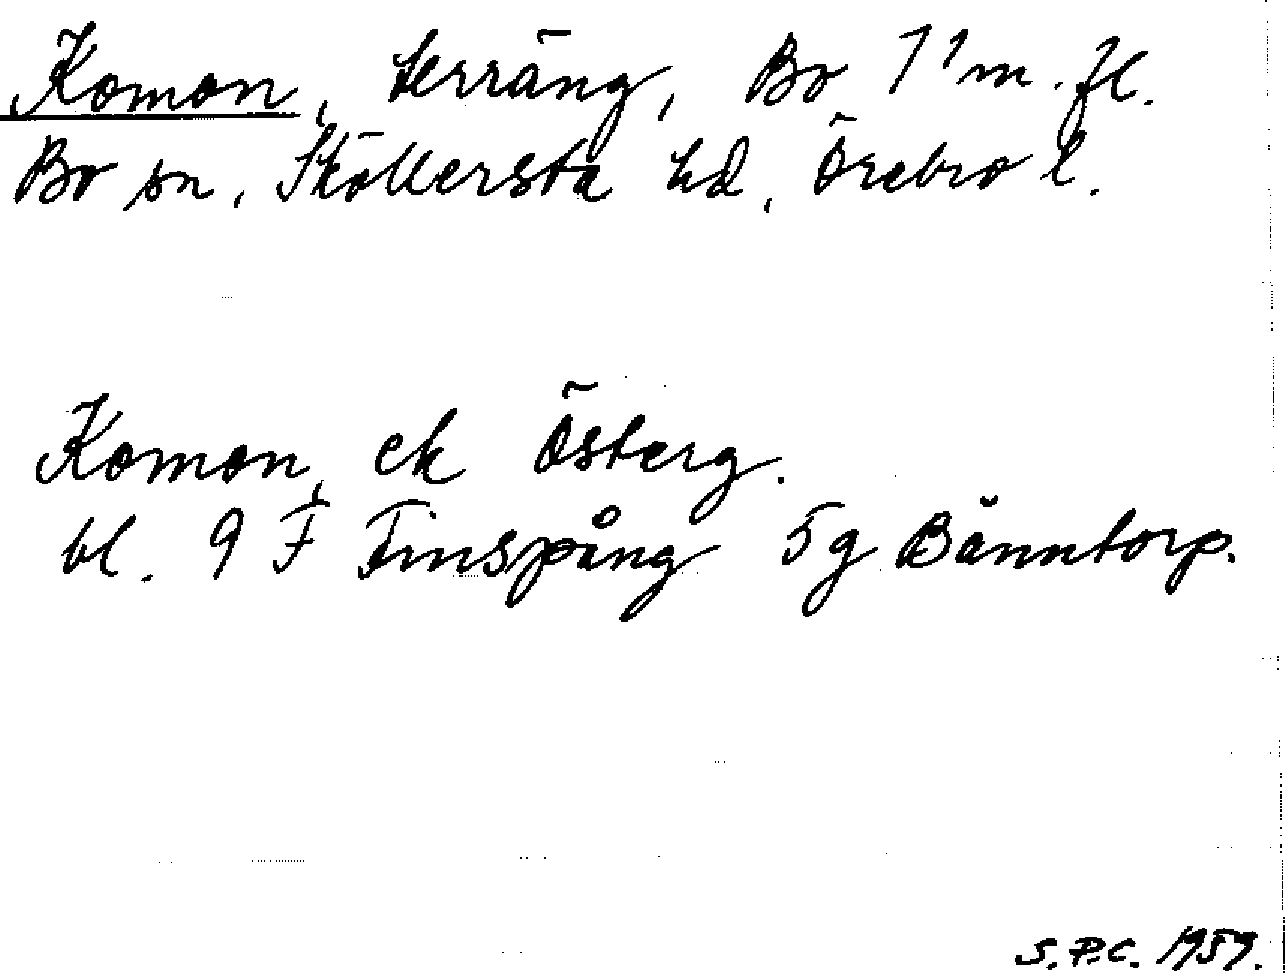 Komon, terräng, Bo 1¹ m. fl.
Bo sn, Sköllersta hd, Örebro l.
Komon, ek Österg.
bl. 9 F Finspång 5g Bänntorp.
S.P.C. 1959.